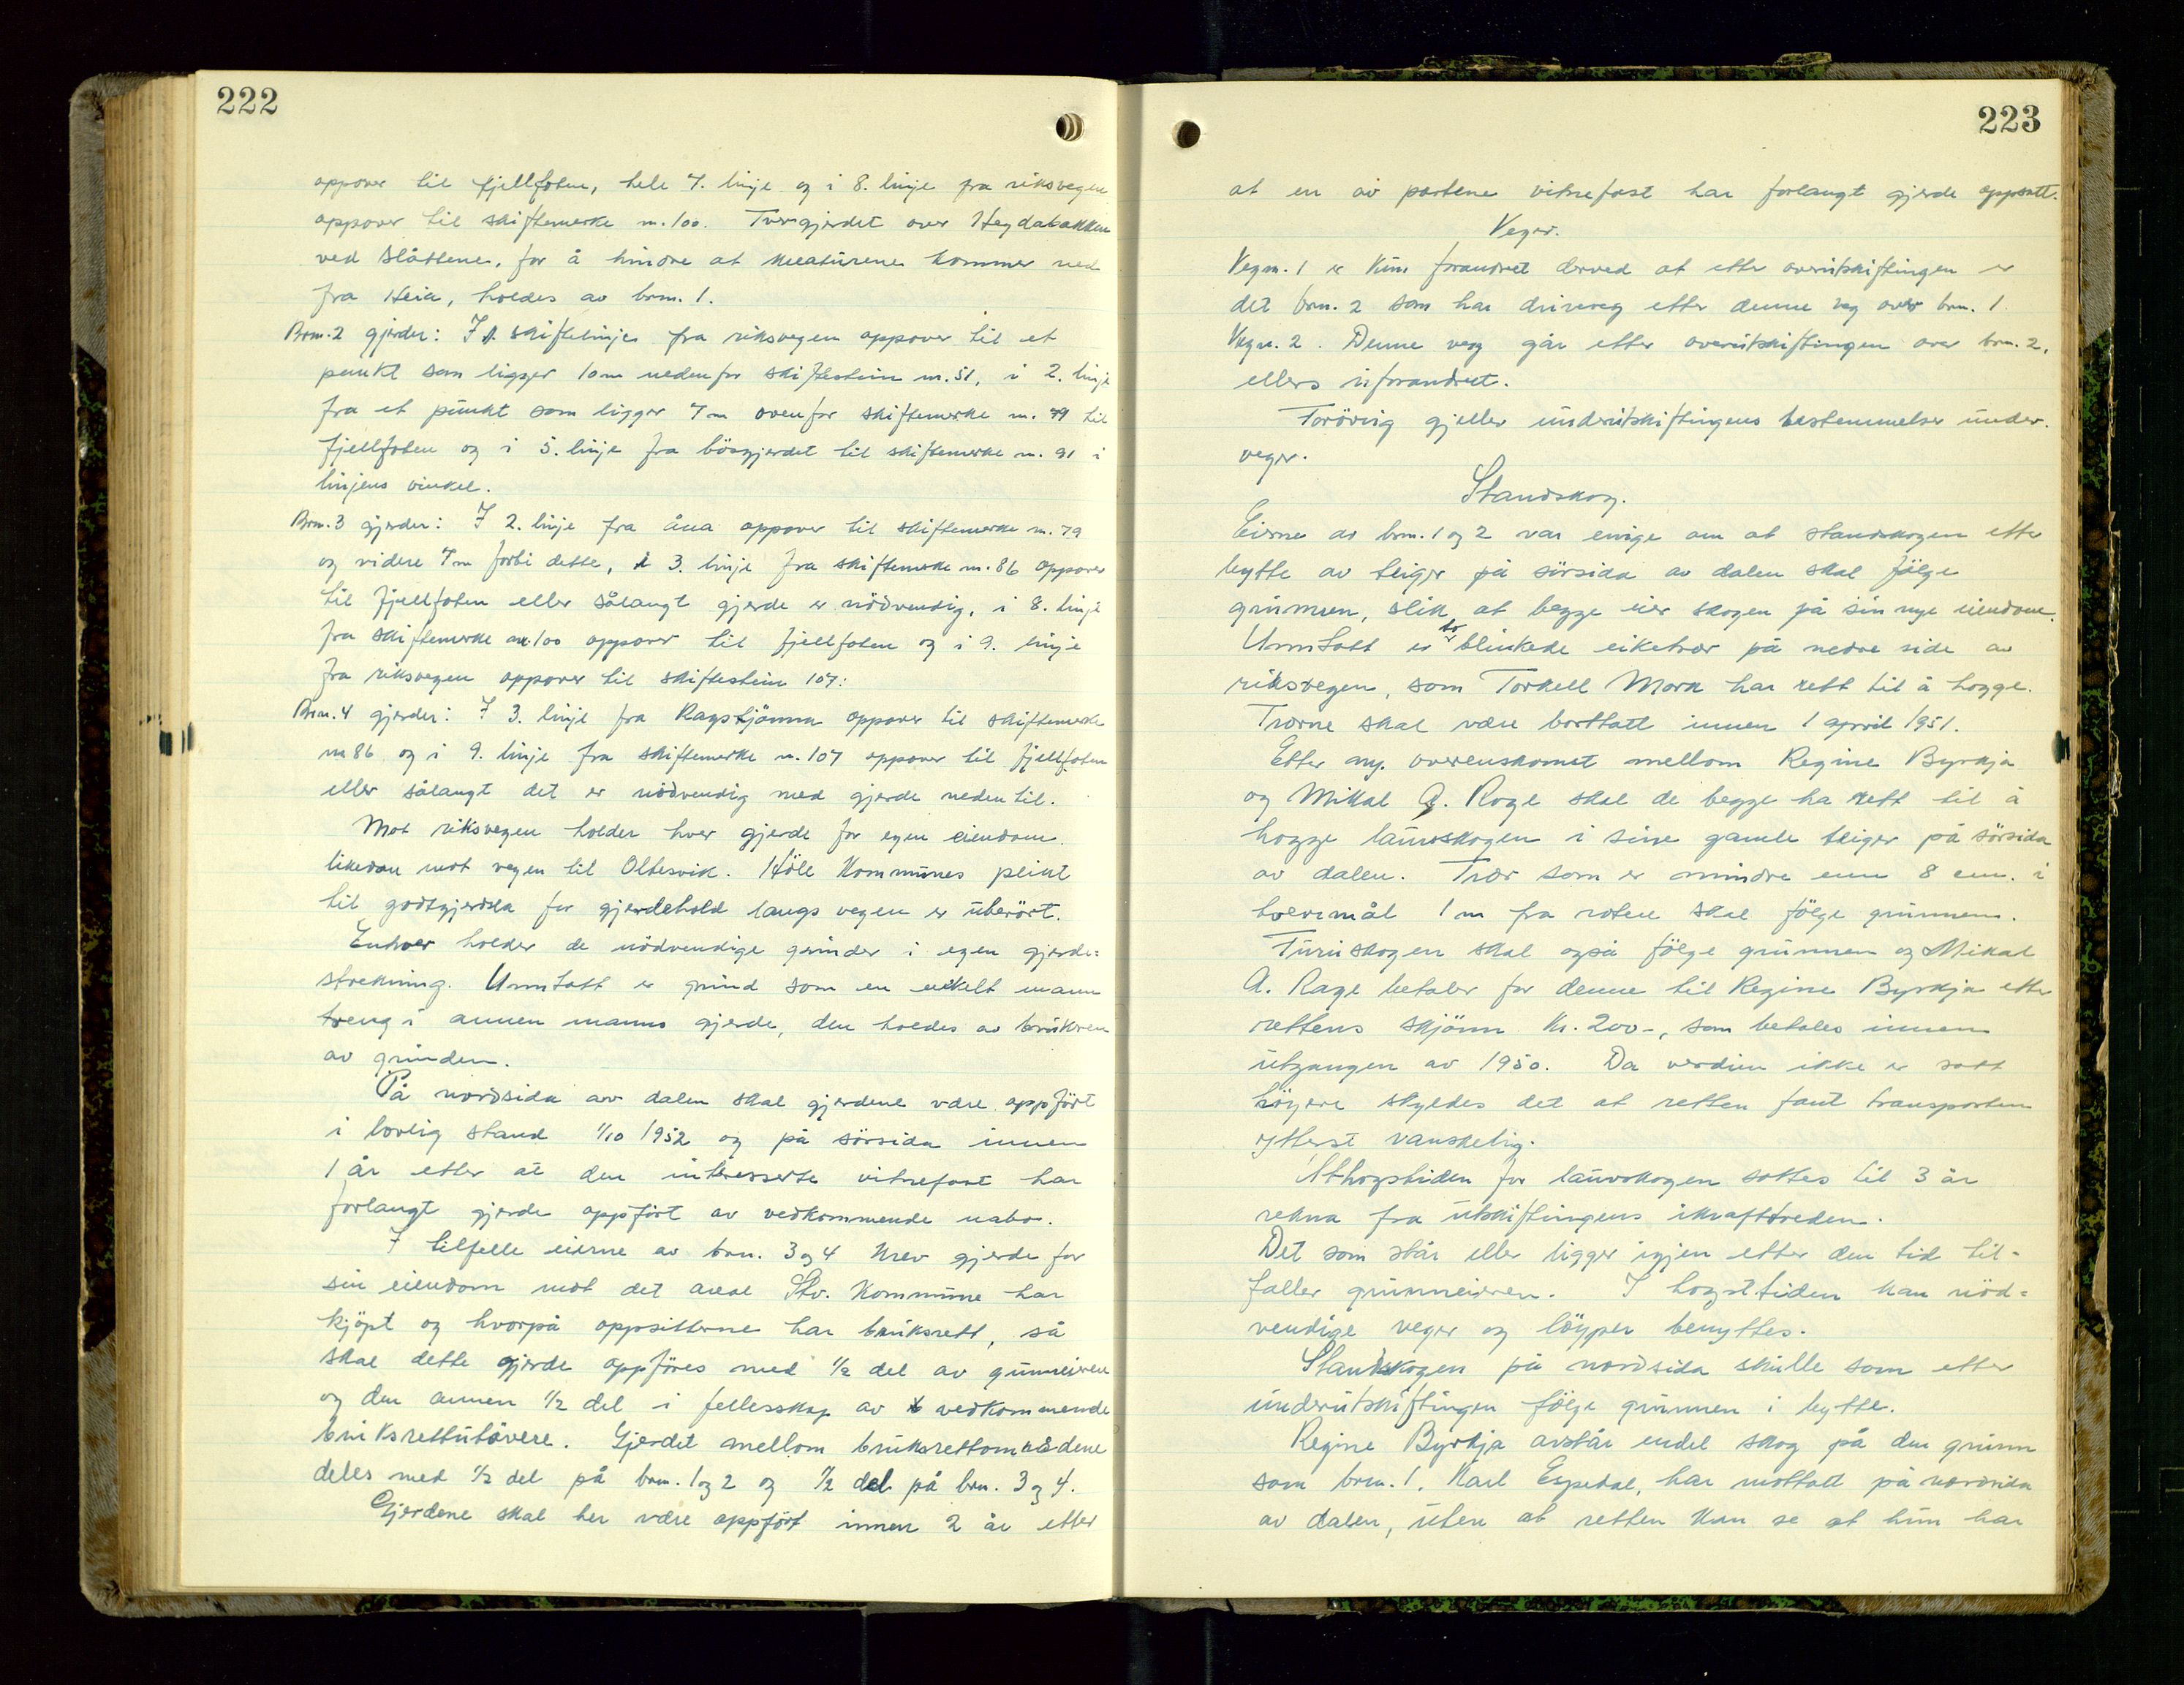 222
oppover til fjellfoten, hele 7. linje og i 8. linje fra riksvegen
oppover til skiftemerke nr. 100. Tverrgjerdet over Høgdabakken
ved Slåttene, for å hindre at kreaturene kommer ned
fra Heia, holdes av brnr. 1.
Brnr. 2 gjerder: I 1. skiftelinje fra riksvegen oppover til et
punkt som ligger 10 m nedenfor skiftestein nr. 51, i 2. linje
fra et punkt som ligger 7 m ovenfor skiftemerke nr. 79 til
fjellfoten og i 5. linje fra bögjerdet til skiftemerke nr. 91 i
linjens vinkel.
Brnr. 3 gjerder: I 2. linje fra åna oppover til skiftemerke nr. 79
og videre 7 m forbi dette, i 3. linje fra skiftemerke nr. 86 oppover
til fjellfoten eller sålangt gjerde er nödvendig, i 8. linje
fra skiftemerke nr. 100 oppover til fjellfoten og i 9. linje
fra riksvegen oppover til skiftestein 107.
Brnr. 4 gjerder: I 3. linje fra Ragstjönna oppover til skiftemerke
nr 86 og i 9. linje fra skiftemerke nr. 107 oppover til fjellfoten
eller sålangt det er nödvendig med gjerde nedentil.
Mot riksvegen holder hver gjerde for egen eiendom
likedan mot vegen til Oltesvik. Höle Kommunes plikt
til godtgjerdsla for gjerdehold langs vegen er uberört.
Enhver holder de nödvendige grinder i egen gjerde-
strekning. Unntatt er grind som en enkelt mann
treng i annen manns gjerde, den holdes av brukeren
av grinden.
På nordsida av dalen skal gjerdene være oppfört
i lovlig stand 1/10 1952 og på sörsida innen
1 år etter at den interesserte vitnefast har
forlangt gjerde oppfört av vedkommende nabo.
I tilfelle eierne av brnr. 3 og 4 krev gjerde for
sin eiendom mot det areal Stv. Kommune har
kjöpt og hvorpå oppsitterne har bruksrett, så
skal dette gjerde oppföres med 1/2 del av grunneieren
og den annen 1/2 del i fellesskap av vedkommende
bruksrettutövere. Gjerdet mellom bruksrettområdene
deles med 1/2 del på brnr. 1 og 2 og 1/2 del på brnr. 3 og 4.
Gjerdene skal her være oppfört innen 2 år etter
223
at en av partene vitnefast har forlangt gjerde oppsatt.
Veger.
Vegnr. 1 er kun forandret derved at etter overutskiftingen er
det brnr. 2 som har driveveg etter denne veg over brnr. 1.
Vegnr. 2. Denne veg går etter overutskiftingen over brnr. 2,
ellers uforandret.
Foröving gjeller underutskiftingens bestemmelser under
veger.
Standskog.
Eierne av brnr. 1 og 2 var enige om at standskogen etter
bytte av teiger på sörsida av dalen skal fölge
grunnen, slik at begge eier skogen på sin nye eiendom.
Unntatt er to blinkede eiketrær på nedre side av
riksvegen, som Torkell Mork har rett til å hogge.
Trærne skal være borttatt innen 1 april 1951.
Etter ny. overenskomst mellom Regine Byrkja
og Mikal A. Rage skal de begge ha rett til å
hogge lauvskogen i sine gamle teiger på sörsida
av dalen. Trær som er mindre enn 8 cm. i
tverrmål 1 m fra roten skal fölge grunnen.
Furuskogen skal også fölge grunnen og Mikal
A. Rage betaler for denne til Regine Byrkja etter
rettens skjönn kr. 200-, som betales innen
utgangen av 1950. Da verdien ikke er satt
höyere skyldes det at retten fant transporten
ytterst vanskelig.
Uthogstiden for lauvskogen settes til 3 år
rekna fra utskiftingens ikrafttreden.
Det som står eller ligger igjen etter den tid til-
faller grunneieren. I hogsttiden kan nöd-
vendige veger og löyper benyttes.
Standskogen på nordsida skulle som etter
underutskiftingen fölge grunnen i bytte.
Regine Byrkja avstår endel skog på den grunn
som brnr. 1, Karl Espedal, har mottatt på nordsida
av dalen, uten at retten kan se at hun har